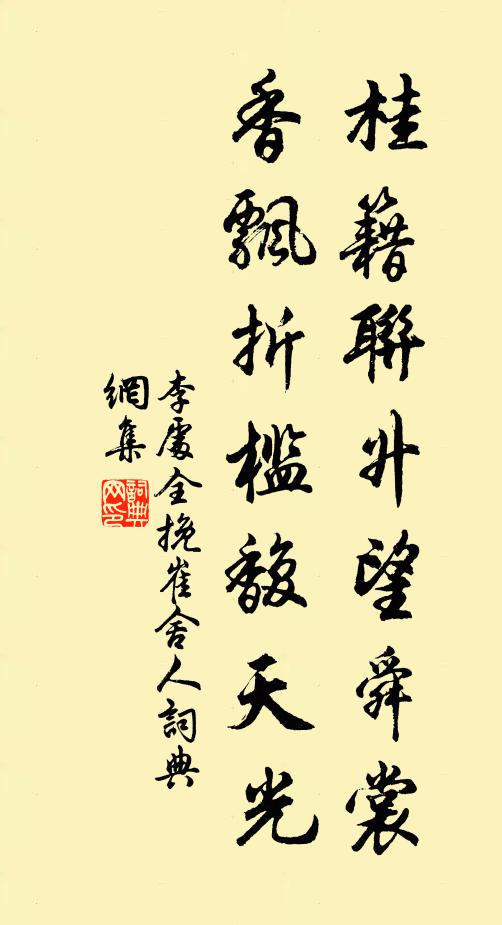 桂籍聯升望舜裳
香飄折檻馥天光
李處全挽崔舍人詞典
網集
詞典網印